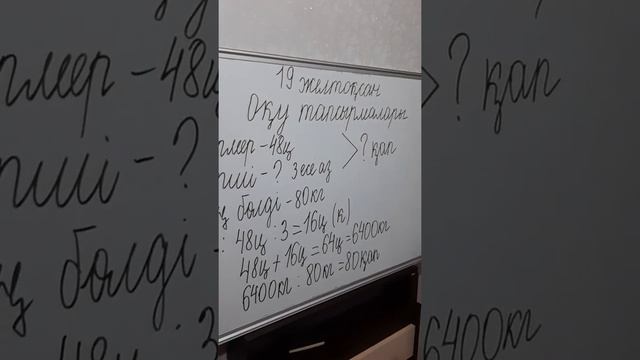 19 желтоқсан
Оқу тапсырмалары
-48ц
- ? 3 есе аз > ? қап
болді - 80кг
48ц : 3 = 16ц (к)
48ц + 16ц = 64ц = 6400кг
6400кг : 80кг = 80қап